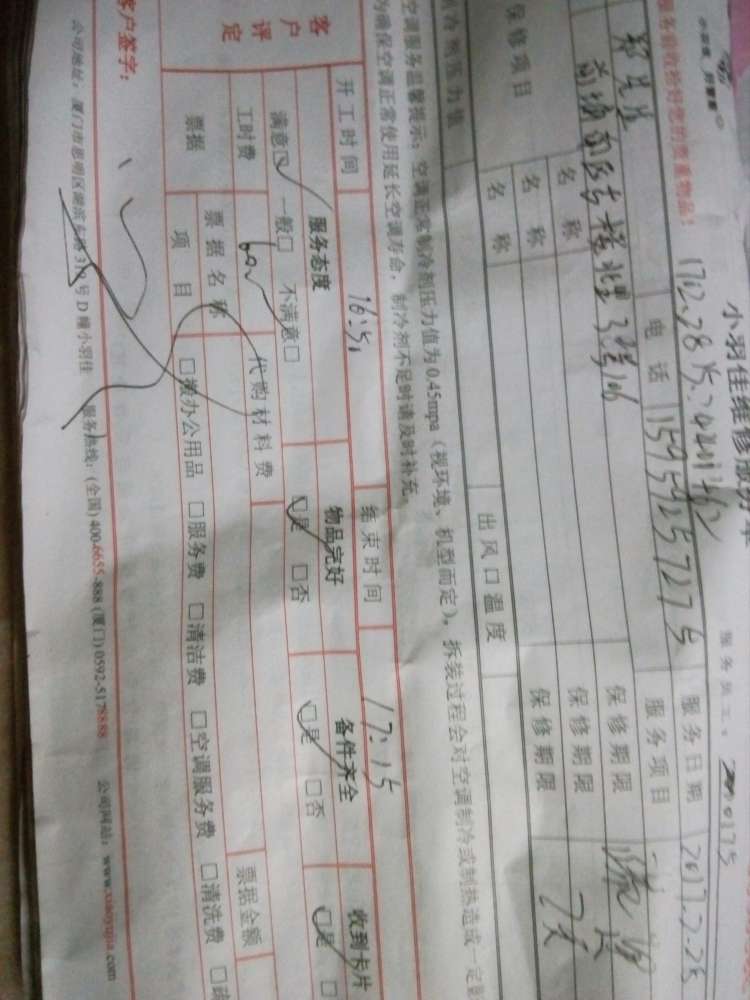 小羽佳维修服务
服务员工：
服务前收拾好您的贵重物品！
服务日期 2017.2.28
郑先生 电话 服务项目
名称 保修期限
保修项目 名称 保修期限
名称 保修期限 7天
制冷剂压力值 出风口温度
空调服务温馨提示：空调正常制冷剂压力值为0.45mpa（视环境、机型而定）。拆装过程会对空调制冷或制热造成一定
为确保空调正常使用延长空调寿命，制冷剂不足时请及时补充。
开工时间 16:51 结束时间 17:15
客户评定 服务态度 物品完好 备件齐全 收到卡片
满意☑ 一般□ 不满意□ ☑是 □否 ☑是 □否 ☑是 □
工时费 代购材料费 票据金额
票据 票据名称
项目 □缴办公用品 □服务费 □清洁费 □空调服务费 □清洗费
客户签字：
公司地址：厦门市思明区湖滨东路319号D幢小羽佳 服务热线：(全国) 400-6655-888 (厦门) 0592-5178888 公司网站：www.xiaoyujia.com